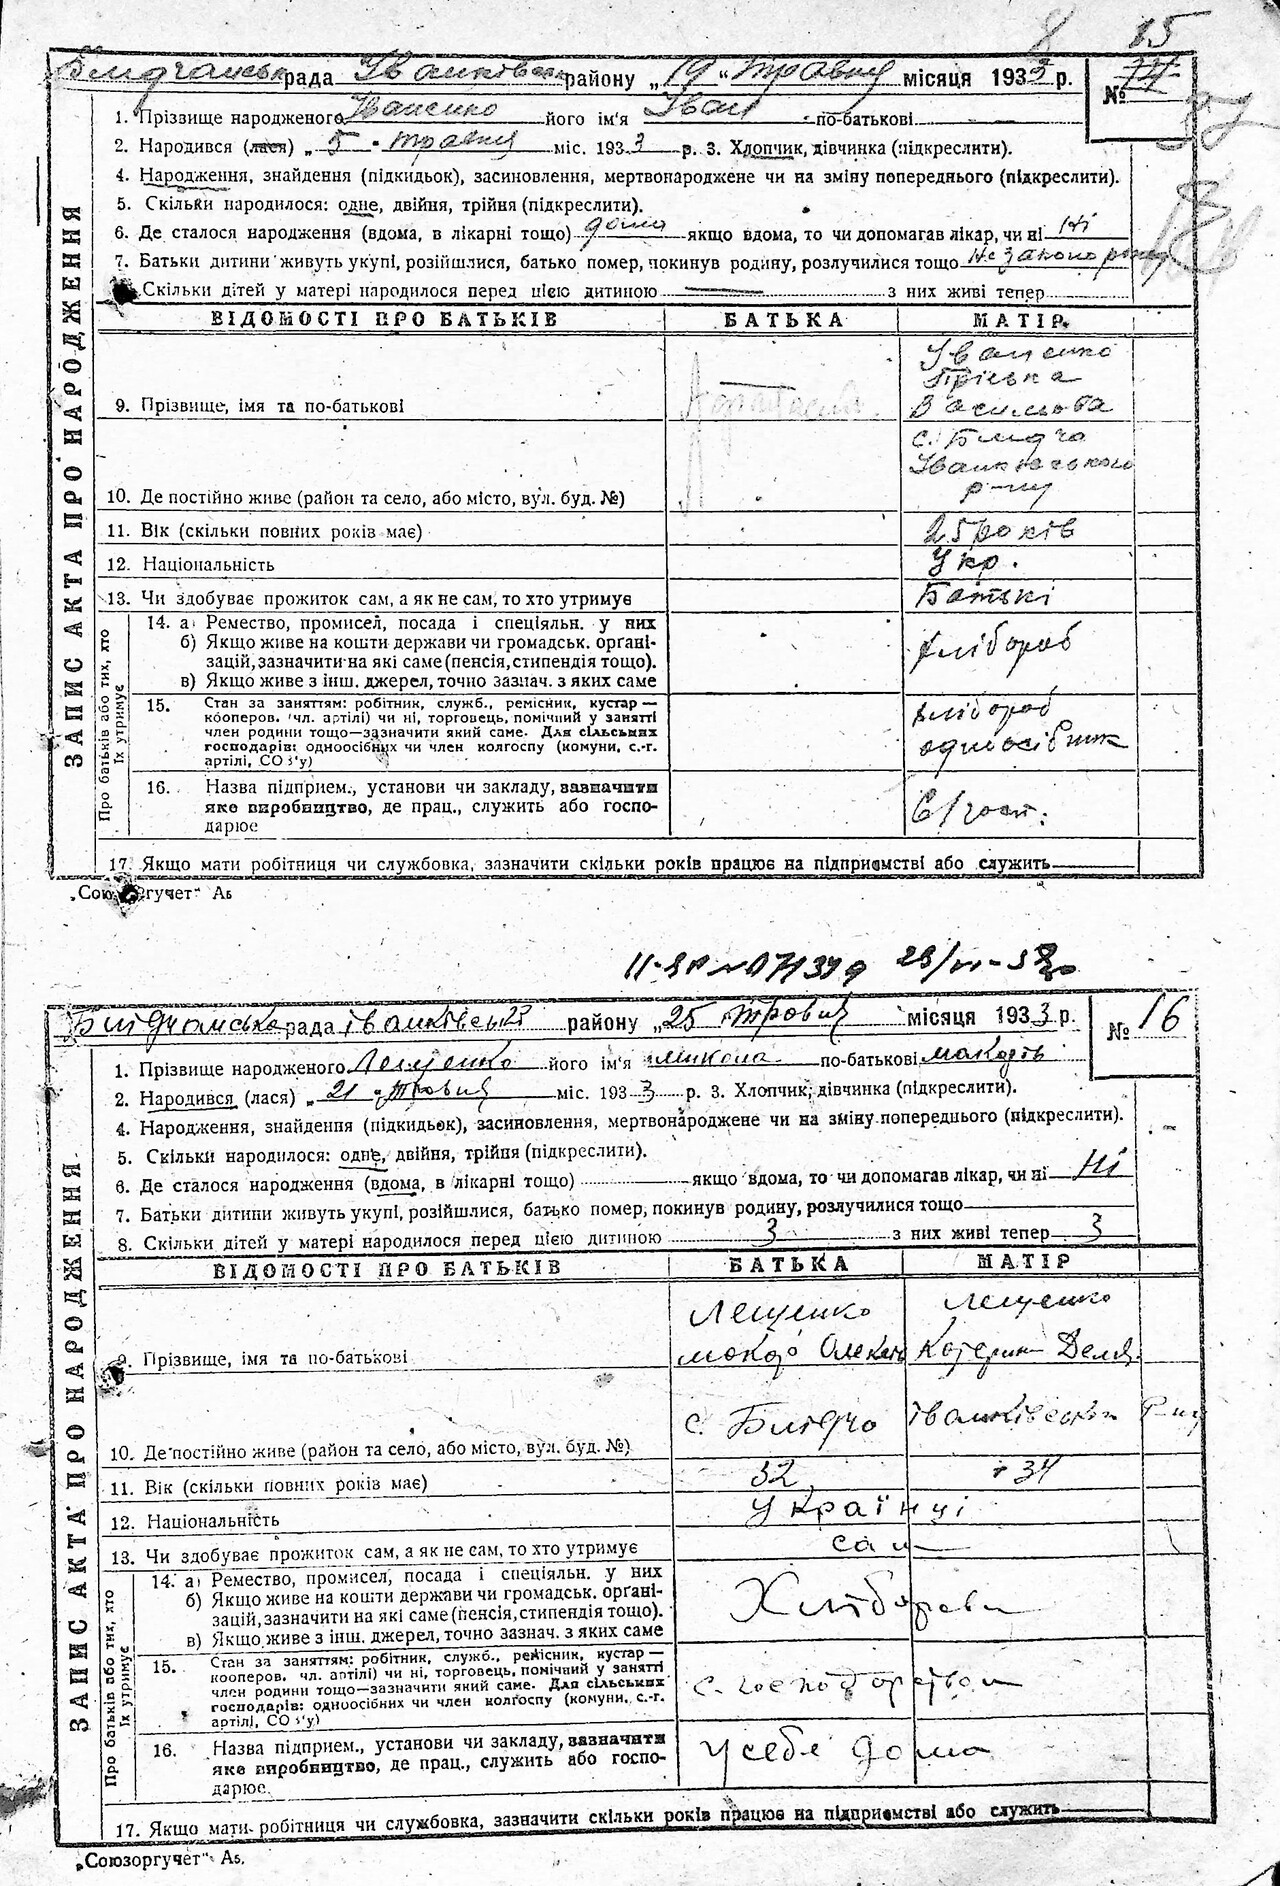 8 15
рада Іванківськ району „19“ травня місяця 1933 р.
№
1. Прізвище народженого Іваненко його ім'я Іван по-батькові
2. Народився (лася) „5“ травня міс. 1933 р. 3. Хлопчик, дівчинка (підкреслити).
4. Народження, знайдення (підкидьок), засиновлення, мертвонароджене чи на зміну попереднього (підкреслити).
5. Скільки народилося: одне, двійня, трійня (підкреслити).
6. Де сталося народження (вдома, в лікарні тощо) дома якщо вдома, то чи допомагав лікар, чи ні Ні
7. Батьки дитини живуть укупі, розійшлися, батько помер, покинув родину, розлучилися тощо
Скільки дітей у матері народилося перед цією дитиною — з них живі тепер
ЗАПИС АКТА ПРО НАРОДЖЕННЯ
ВІДОМОСТІ ПРО БАТЬКІВ БАТЬКА МАТІР
9. Прізвище, імя та по-батькові
Іваненко
Пріська
Василівна
10. Де постійно живе (район та село, або місто, вул. буд. №)
с. Блидча
Іванківського
р-ну
11. Вік (скільки повних років має) 25 років
12. Національність Укр.
13. Чи здобуває прожиток сам, а як не сам, то хто утримує Батькі
Про батьків або тих, хто їх утримує
14. а) Ремество, промисел, посада і спеціяльн. у них
б) Якщо живе на кошти держави чи громадськ. органі-
зацій, зазначити на які саме (пенсія, стипендія тощо).
в) Якщо живе з інш. джерел, точно зазнач. з яких саме
хлібороб
15. Стан за заняттям: робітник, служб., ремісник, кустар —
кооперов. чл. артілі) чи ні, торговець, помічний у занятті
член родини тощо—зазначити який саме. Для сільських
господарів: одноосібних чи член колгоспу (комуни, с.-г.
артілі, СОЗ'у)
хлібороб
одноосібник
16. Назва підприєм., установи чи закладу, зазначити
яке виробництво, де прац., служить або госпо-
дарює
С/госп.
17. Якщо мати робітниця чи службовка, зазначити скільки років працює на підприємстві або служить
„Союзоргучет“ А5
рада Іванківській району „25“ травня місяця 1933 р.
№ 16
1. Прізвище народженого Лещенко його ім'я Микола по-батькові
2. Народився (лася) „21“ травня міс. 1933 р. 3. Хлопчик, дівчинка (підкреслити).
4. Народження, знайдення (підкидьок), засиновлення, мертвонароджене чи на зміну попереднього (підкреслити).
5. Скільки народилося: одне, двійня, трійня (підкреслити).
6. Де сталося народження (вдома, в лікарні тощо) якщо вдома, то чи допомагав лікар, чи ні Ні
7. Батьки дитини живуть укупі, розійшлися, батько помер, покинув родину, розлучилися тощо
8. Скільки дітей у матері народилося перед цією дитиною 3 з них живі тепер 3
ЗАПИС АКТА ПРО НАРОДЖЕННЯ
ВІДОМОСТІ ПРО БАТЬКІВ БАТЬКА МАТІР
Лещенко Лещенко
9. Прізвище, імя та по-батькові
10. Де постійно живе (район та село, або місто, вул. буд. №) с. Блидча Іванківськ р-ну
11. Вік (скільки повних років має) 32 34
12. Національність Українці
13. Чи здобуває прожиток сам, а як не сам, то хто утримує сам
Про батьків або тих, хто їх утримує
14. а) Ремество, промисел, посада і спеціяльн. у них
б) Якщо живе на кошти держави чи громадськ. органі-
зацій, зазначити на які саме (пенсія, стипендія тощо).
в) Якщо живе з інш. джерел, точно зазнач. з яких саме
15. Стан за заняттям: робітник, служб., ремісник, кустар —
кооперов. чл. артілі) чи ні, торговець, помічний у занятті
член родини тощо—зазначити який саме. Для сільських
господарів: одноосібних чи член колгоспу (комуни, с.-г.
артілі, СОЗ'у)
16. Назва підприєм., установи чи закладу, зазначити
яке виробництво, де прац., служить або госпо-
дарює.
у себе дома
17. Якщо мати робітниця чи службовка, зазначити скільки років працює на підприємстві або служить
„Союзоргучет“ А5.